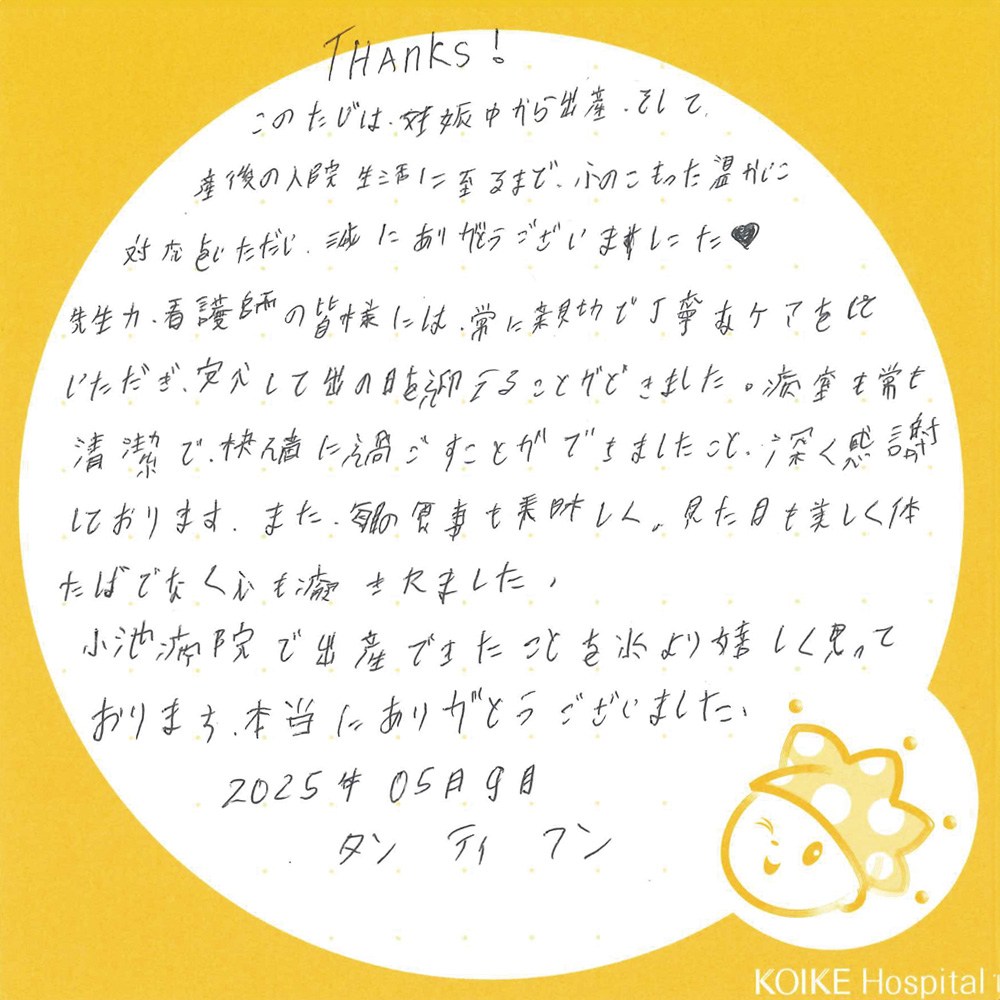 THANKS!
このたびは、妊娠中から出産、そして、
産後の入院生活に至るまで、心のこもった温かいご
対応をいただし、誠にありがとうございました♥
先生方、看護師の皆様には、常に親切で丁寧なケアをして
いただき、安心して出産の日を迎えることができました。病室も常に
清潔で、快適に過ごすことができましたこと、深く感謝
しております。また、毎日の食事も美味しく、見た目も美しく体
だけでなく心も癒されました。
小池病院で出産できたことを心より嬉しく思って
おります、本当にありがとうございました、
2025年05月9日
タン ティ フン
KOIKE Hospital